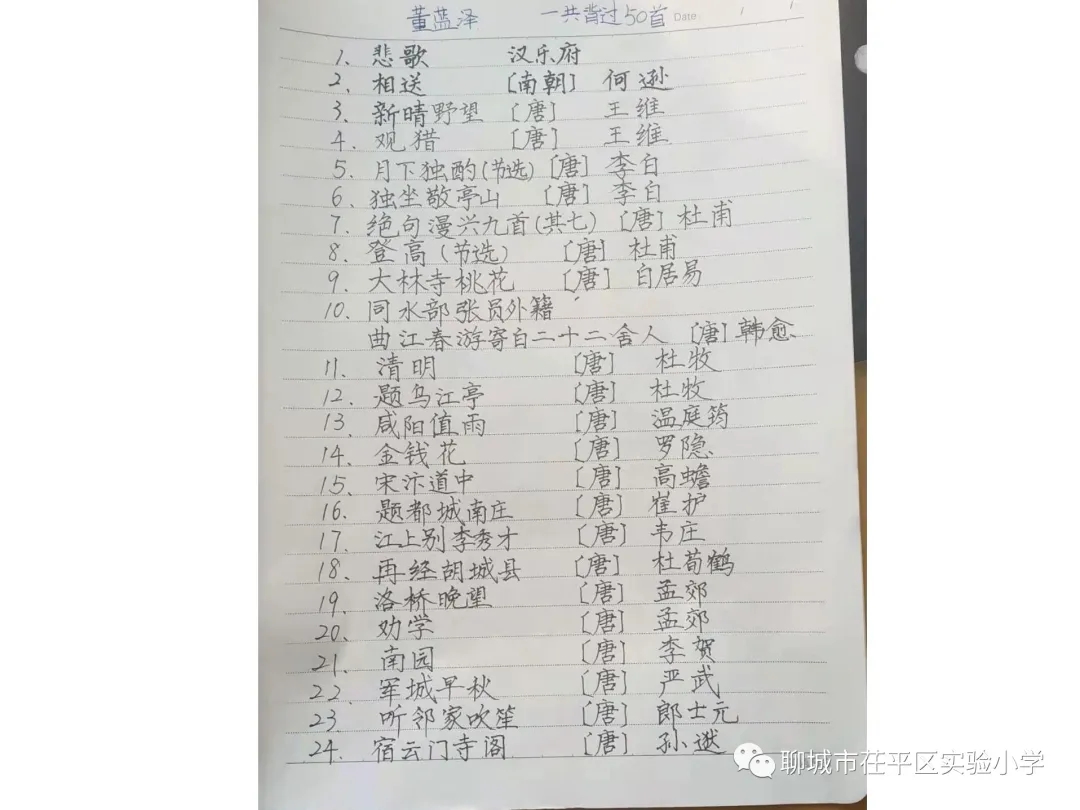 董蓝泽 一共背过50首 Date / /
1. 悲歌 汉乐府
2. 相送 [南朝] 何逊
3. 新晴野望 [唐] 王维
4. 观猎 [唐] 王维
5. 月下独酌(节选) [唐] 李白
6. 独坐敬亭山 [唐] 李白
7. 绝句漫兴九首(其七) [唐] 杜甫
8. 登高(节选) [唐] 杜甫
9. 大林寺桃花 [唐] 白居易
10. 同水部张员外籍
曲江春游寄白二十二舍人 [唐] 韩愈
11. 清明 [唐] 杜牧
12. 题乌江亭 [唐] 杜牧
13. 咸阳值雨 [唐] 温庭筠
14. 金钱花 [唐] 罗隐
15. 宋汴道中 [唐] 高蟾
16. 题都城南庄 [唐] 崔护
17. 江上别李秀才 [唐] 韦庄
18. 再经胡城县 [唐] 杜荀鹤
19. 洛桥晚望 [唐] 孟郊
20. 劝学 [唐] 孟郊
21. 南园 [唐] 李贺
22. 军城早秋 [唐] 严武
23. 听邻家吹笙 [唐] 郎士元
24. 宿云门寺阁 [唐] 孙逖
聊城市茌平区实验小学